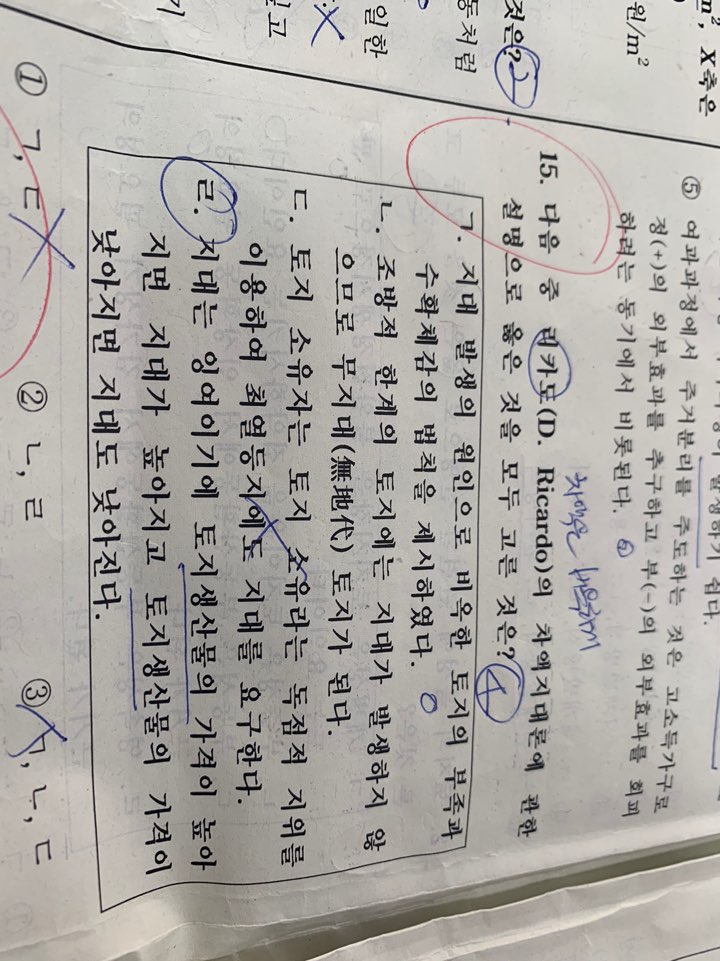 m², X축은
원/m²
것은? 2
동처럼
일한
⑤ 여과과정에서 주거분리를 주도하는 것은 고소득가구로
정(+)의 외부효과를 추구하고 부(-)의 외부효과를 회피
하려는 동기에서 비롯된다.
차액은 비옥해
15. 다음 중 리카도(D. Ricardo)의 차액지대론에 관한
설명으로 옳은 것을 모두 고른 것은? 4
ㄱ. 지대 발생의 원인으로 비옥한 토지의 부족과
수확체감의 법칙을 제시하였다.
ㄴ. 조방적 한계의 토지에는 지대가 발생하지 않
으므로 무지대(無地代) 토지가 된다.
ㄷ. 토지 소유자는 토지 소유라는 독점적 지위를
이용하여 최열등지에도 지대를 요구한다.
ㄹ. 지대는 잉여이기에 토지생산물의 가격이 높아
지면 지대가 높아지고 토지생산물의 가격이
낮아지면 지대도 낮아진다.
① ㄱ, ㄷ
② ㄴ, ㄹ
③ ㄱ, ㄴ, ㄷ